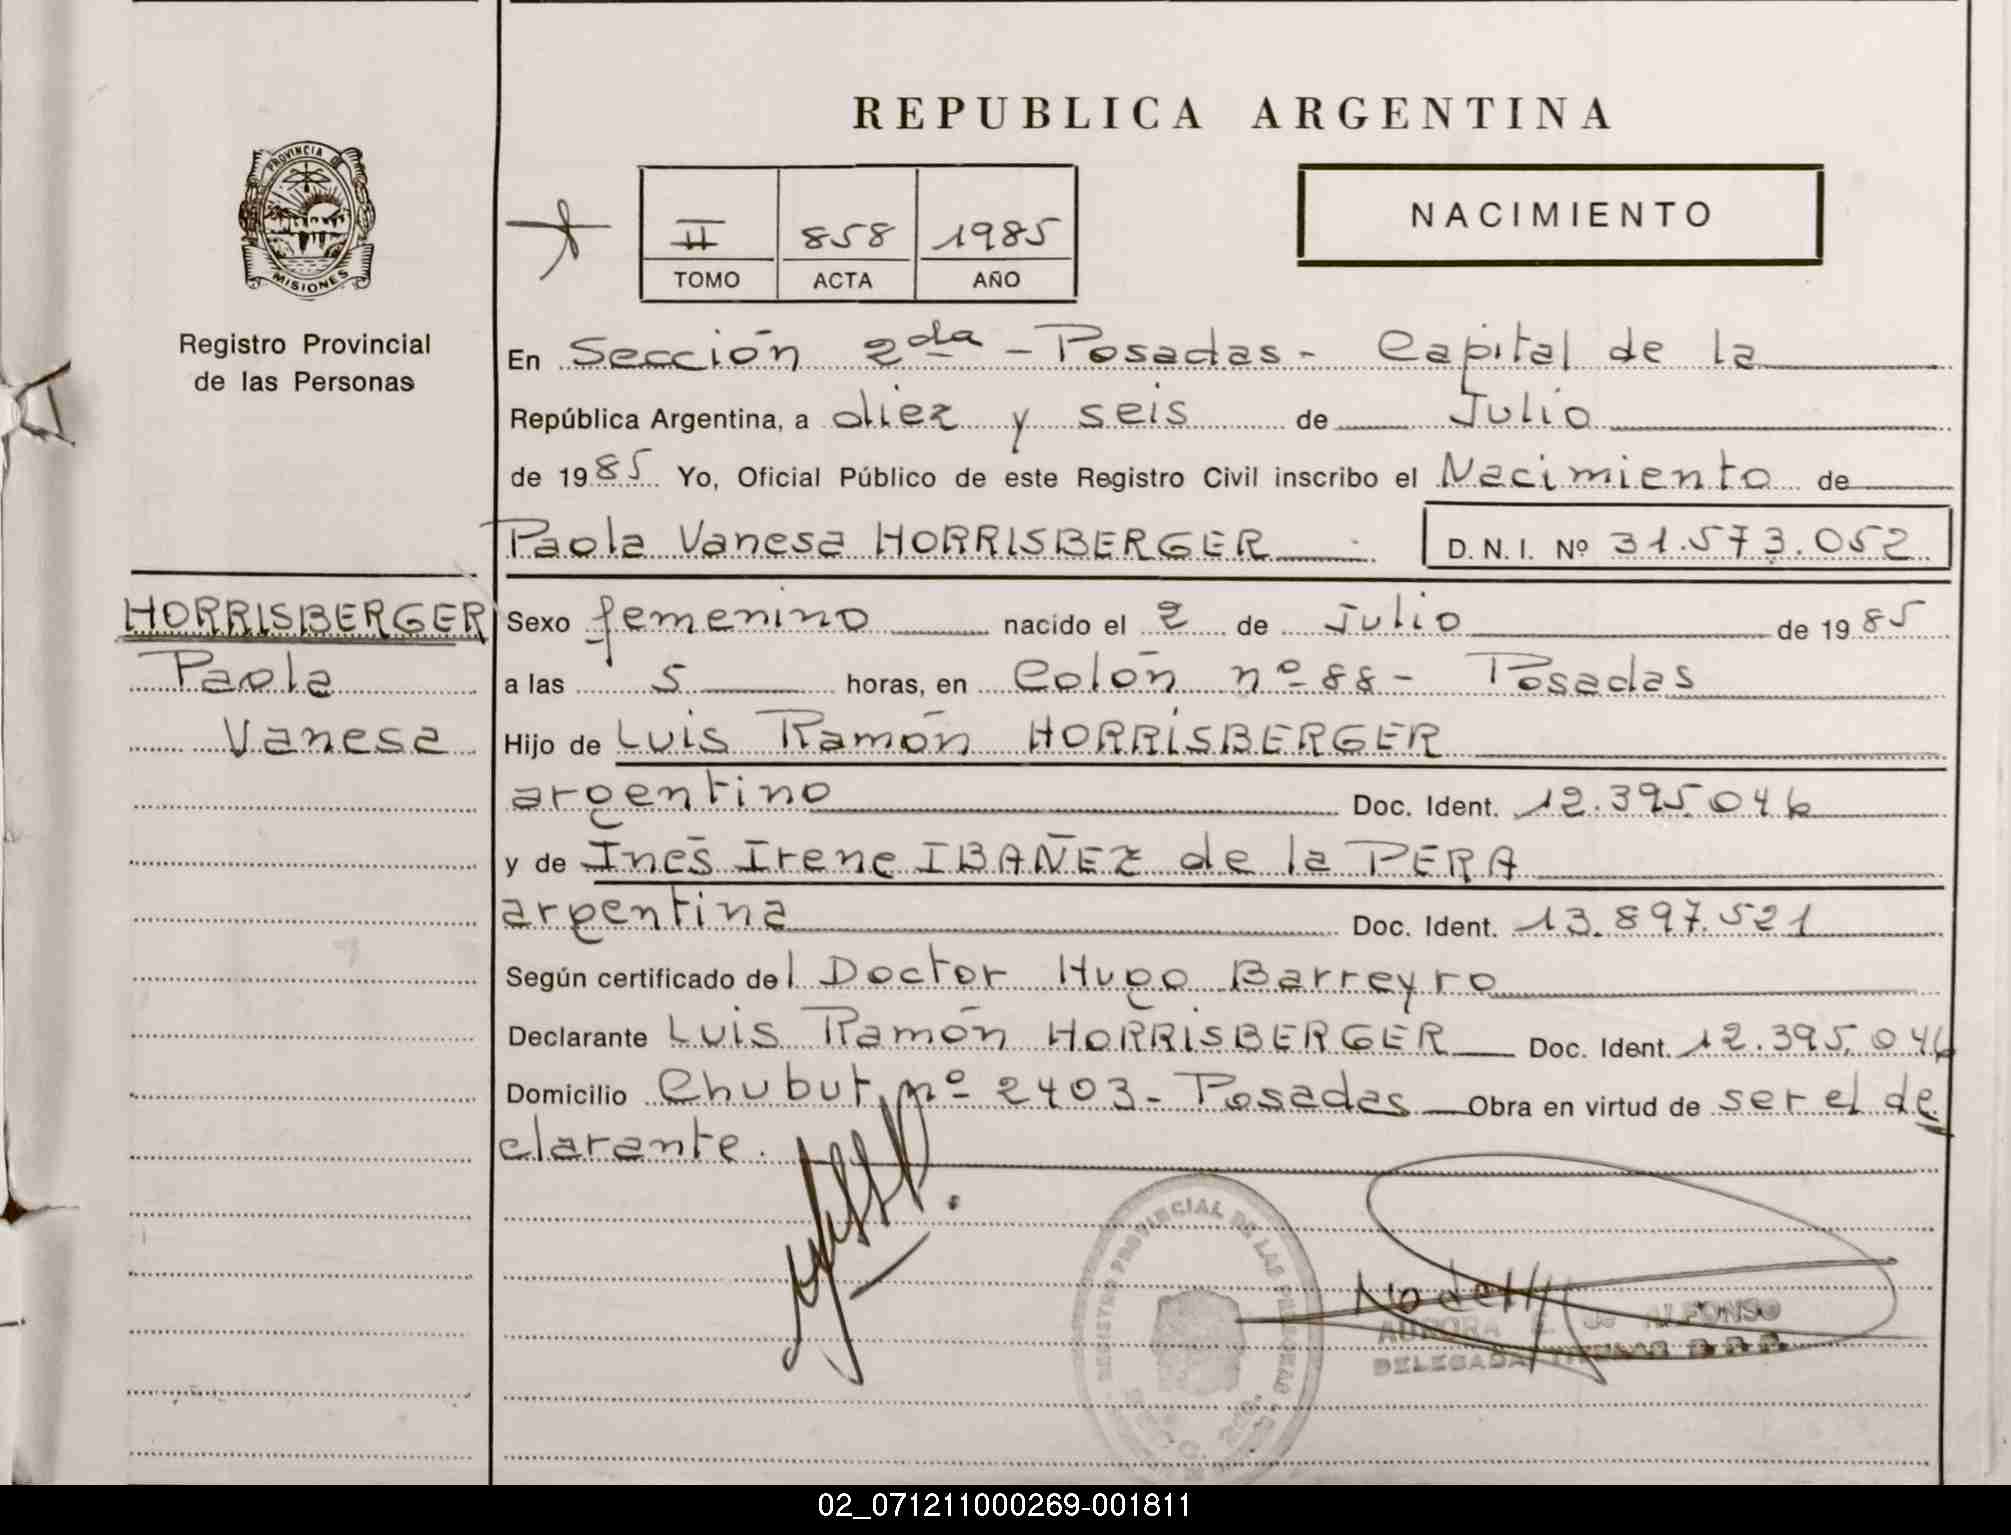 REPUBLICA ARGENTINA
PROVINCIA DE
MISIONES
Registro Provincial
de las Personas
II 858 1985
TOMO ACTA AÑO
NACIMIENTO
En Sección 2da - Posadas - Capital de la
República Argentina, a diez y seis de Julio
de 1985 Yo, Oficial Público de este Registro Civil inscribo el Nacimiento de
Paola Vanesa HORRISBERGER D. N. I. Nº 31.573.052
HORRISBERGER
Paola
Vanesa
Sexo femenino nacido el 2 de Julio de 1985
a las 5 horas, en Colón nº 88 - Posadas
Hijo de Luis Ramón HORRISBERGER
argentino Doc. Ident. 12.395.046
y de Inés Irene IBAÑEZ de la PERA
argentina Doc. Ident. 13.897.521
Según certificado del Doctor Hugo Barreyro
Declarante Luis Ramón HORRISBERGER Doc. Ident. 12.395.046
Domicilio Chubut nº 2403 - Posadas Obra en virtud de ser el de
clarante.
REGISTRO PROVINCIAL DE LAS PERSONAS
AURORA ALFONSO
DELEGADA
02_071211000269-001811